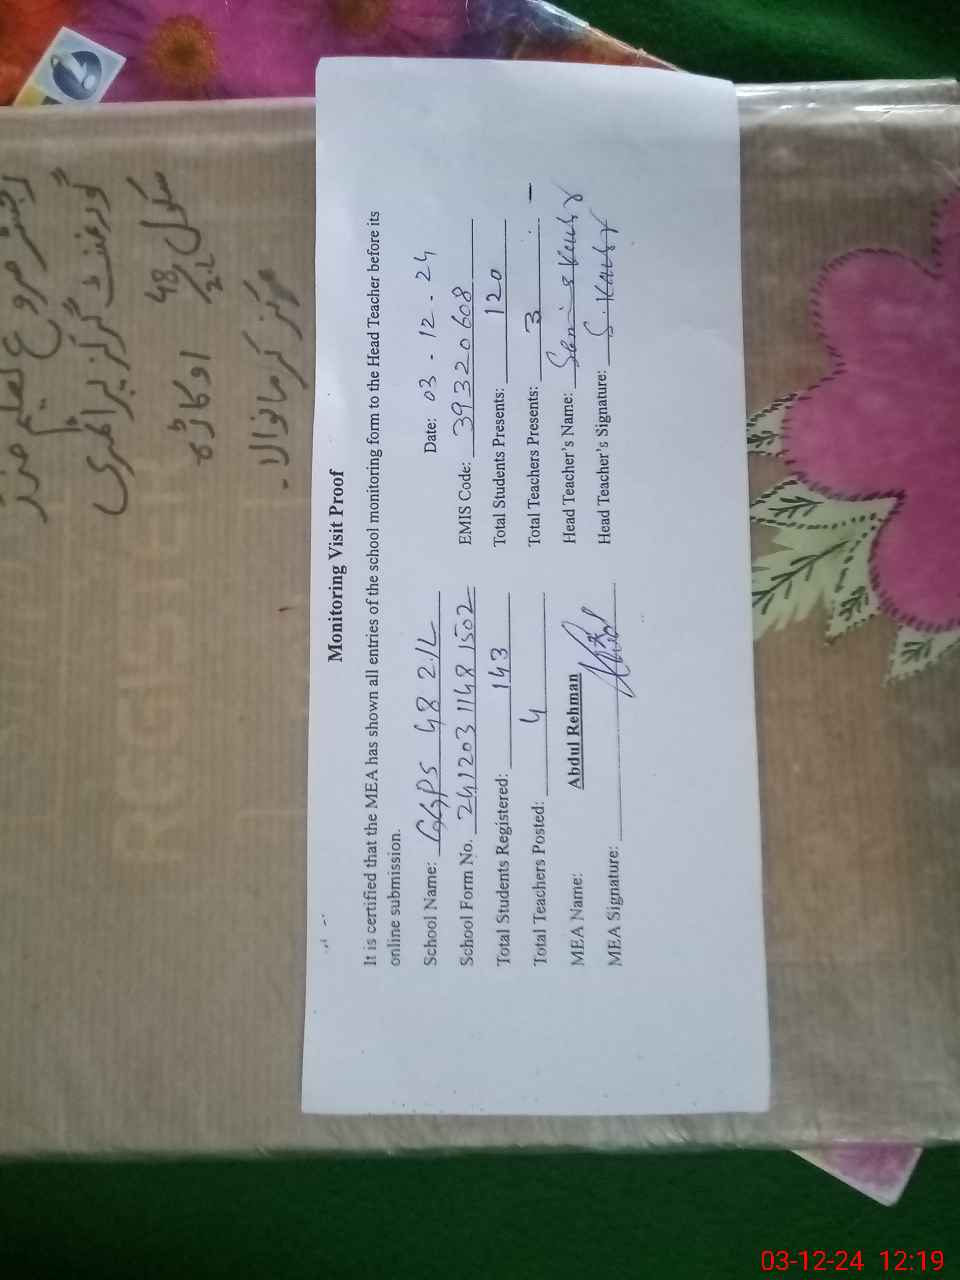 رجسٹر
گورنمنٹ گرلز پرائمری
سکول 48/2L اوکاڑہ
مرکز کرمانوالا۔
REGISTER
Monitoring Visit Proof
It is certified that the MEA has shown all entries of the school monitoring form to the Head Teacher before its
online submission.
School Name: GGPS 48 2.1L Date: 03 - 12 - 24
School Form No. 241203 1148 1502 EMIS Code: 39320608
Total Students Registered: 143 Total Students Presents: 120
Total Teachers Posted: 4 Total Teachers Presents: 3
MEA Name: Abdul Rehman Head Teacher's Name:
MEA Signature: Head Teacher's Signature: S. Kausar
03-12-24 12:19